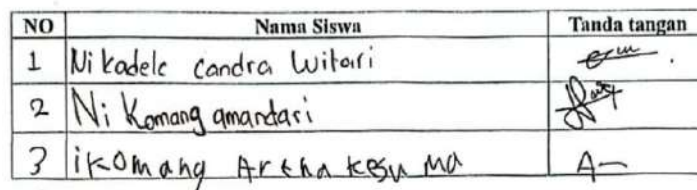 NO Nama Siswa Tanda tangan
1 Ni Kadek Candra Witari
2 Ni Komang amandari
3 i Komang Artha kesuma A